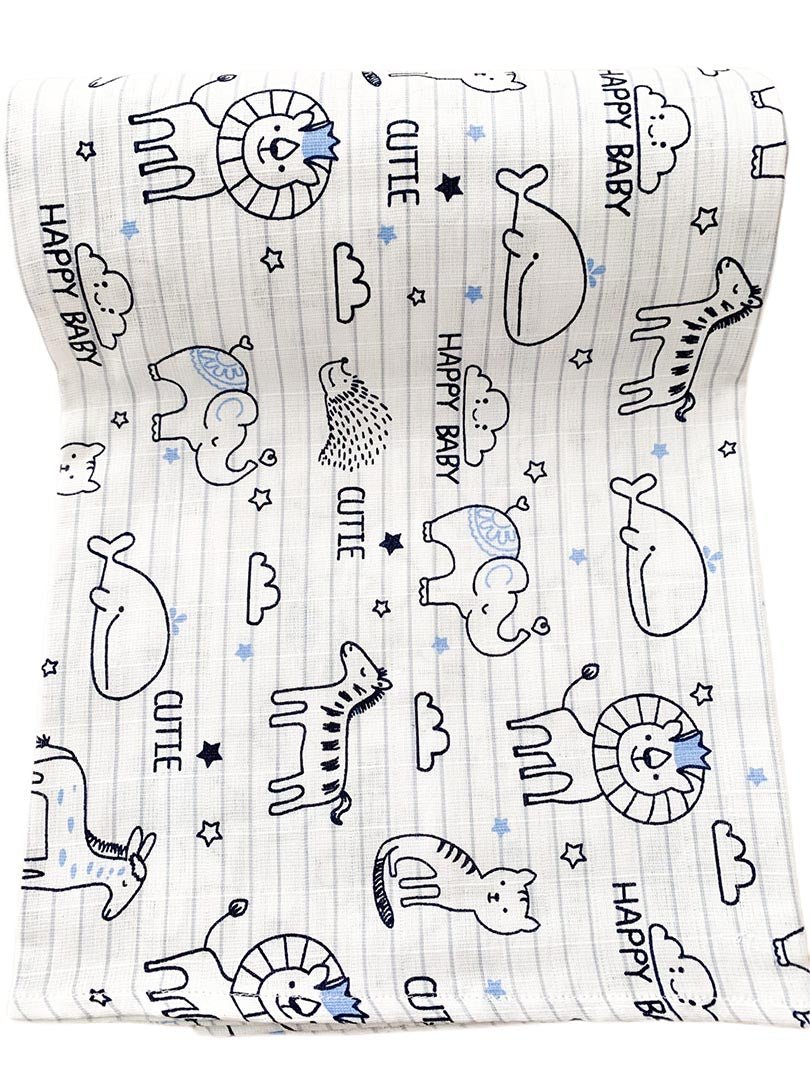 HAPPY BABY
CUTIE
HAPPY BABY
HAPPY BABY
CUTIE
CUTIE
HAPPY BABY
CUT